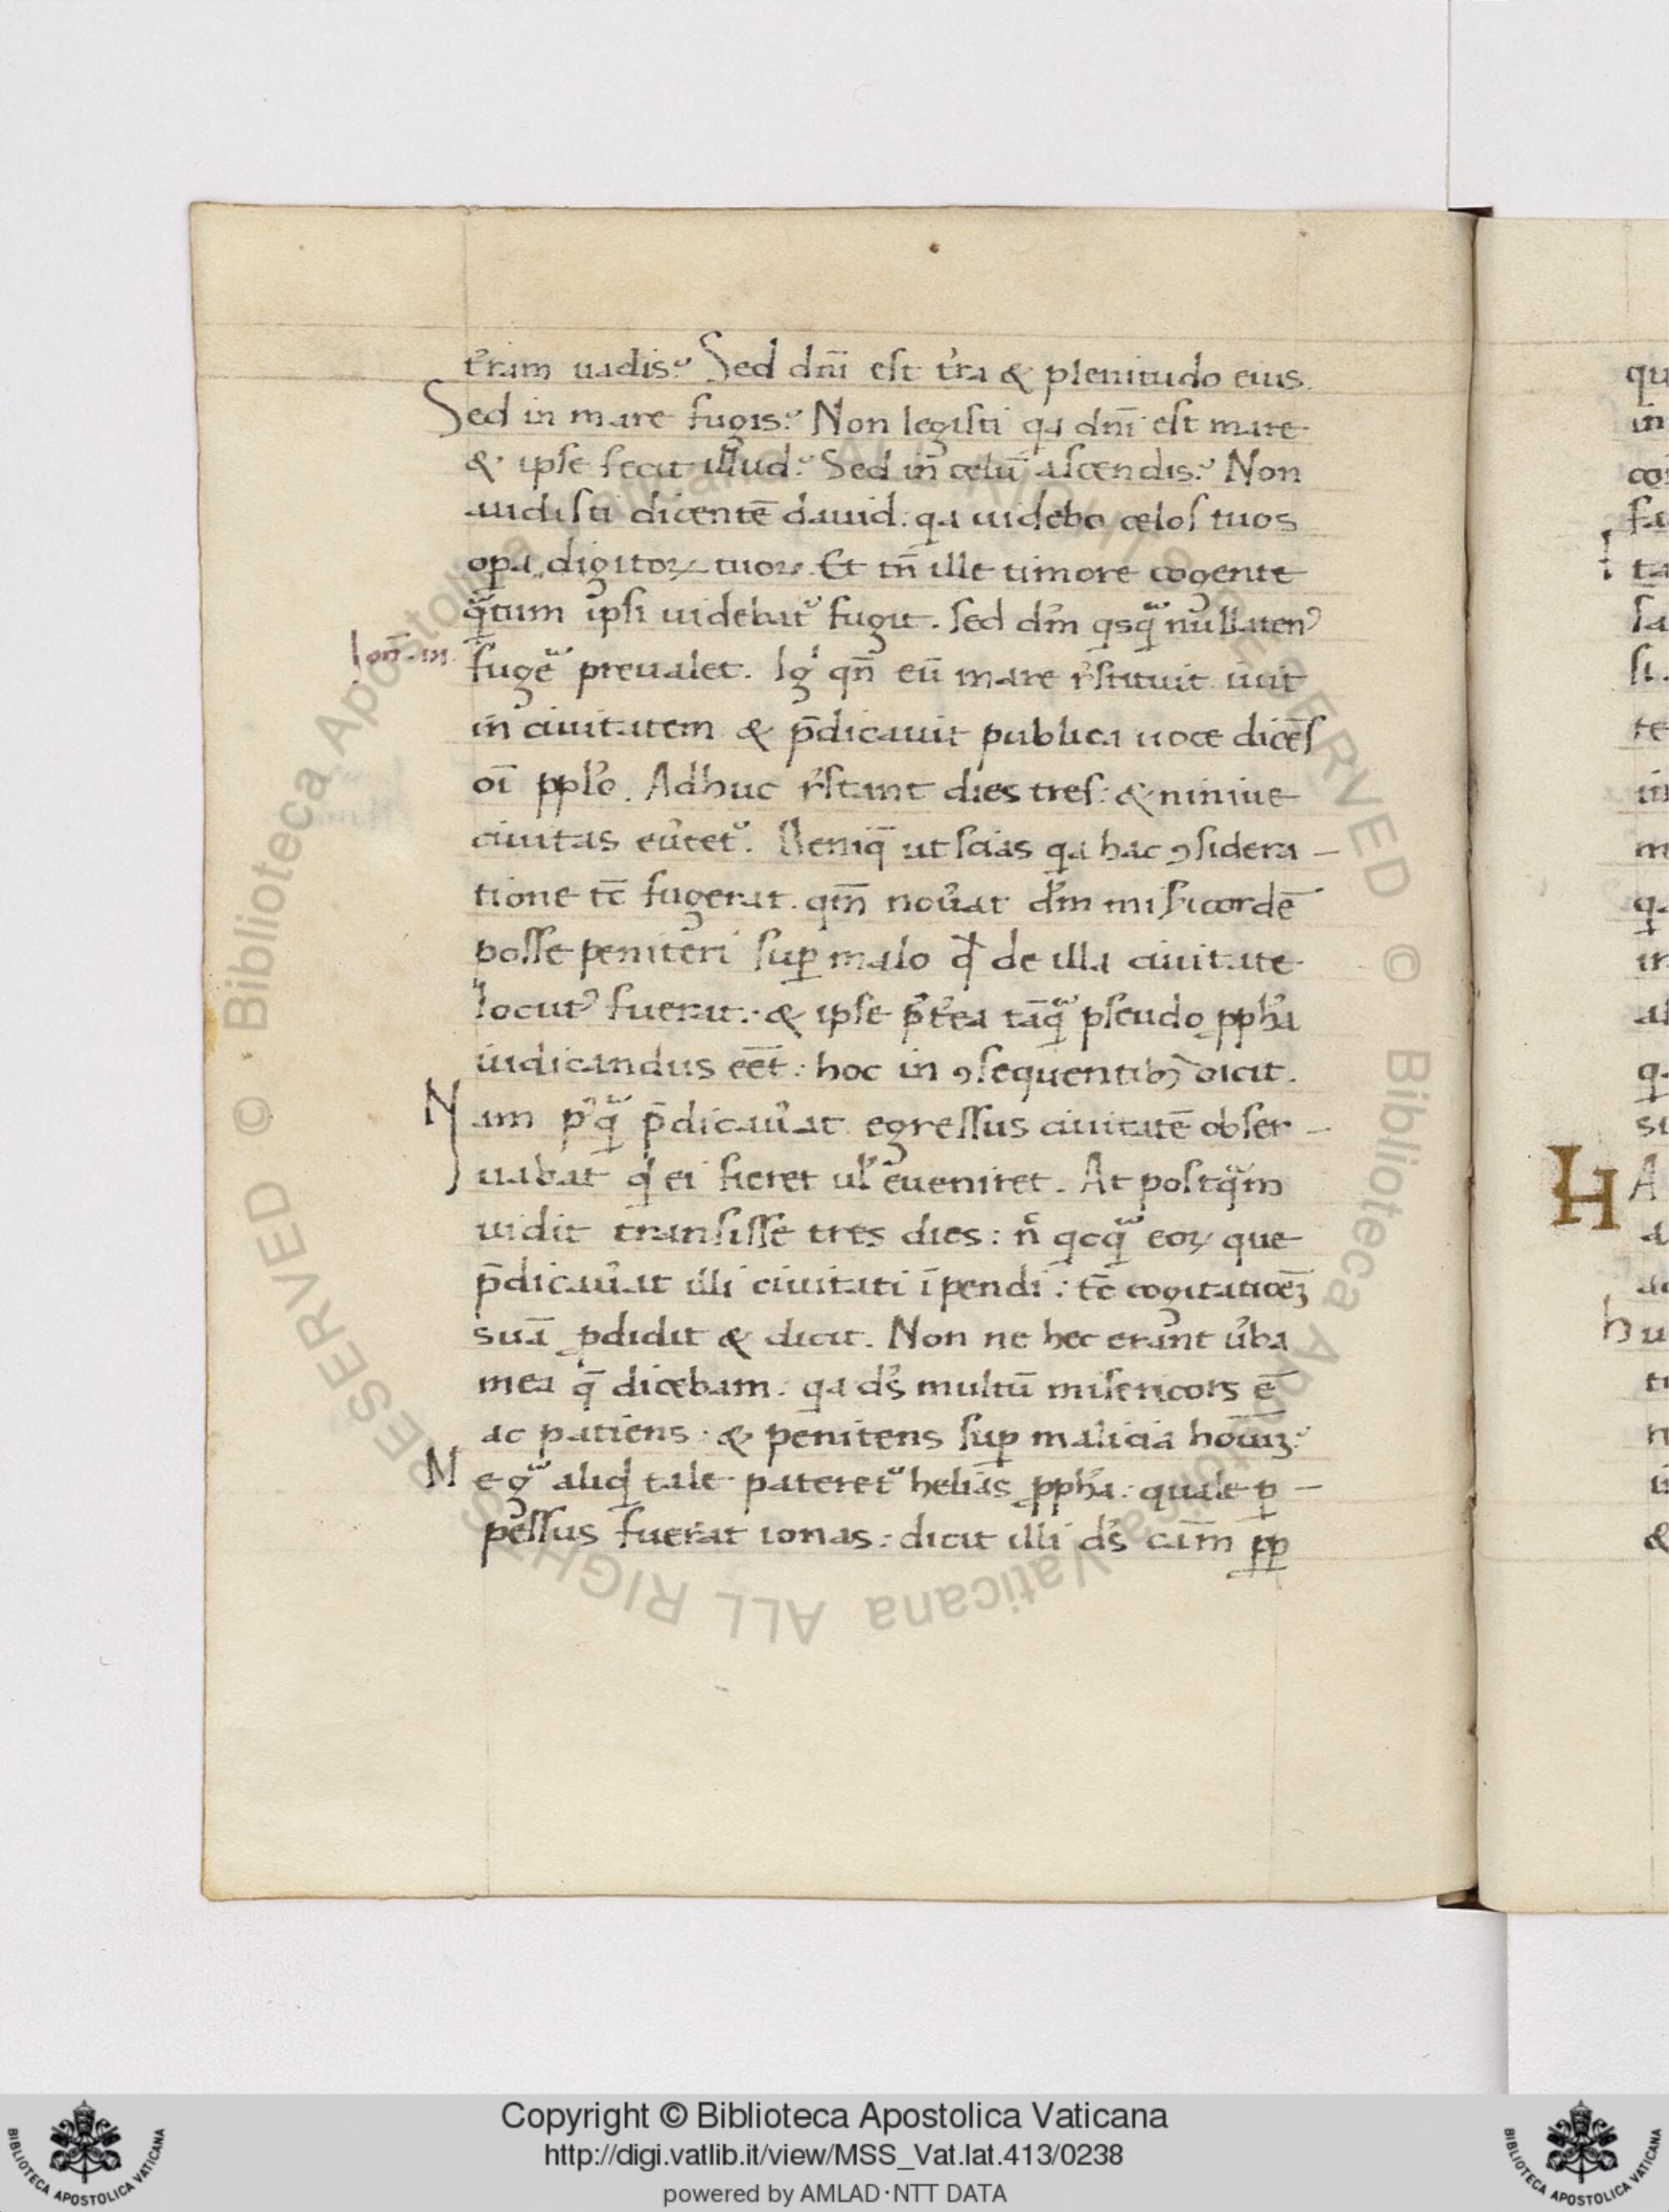 t̓ram uadis? Sed dn̄i est t̓ra & plenitudo eius.
Sed in mare fugis? Non legisti qa dn̄i est mare
& ipse fecit illud? Sed in celū ascendis? Non
audisti dicentē dauid: qa uidebo celos tuos
opa digitoꝝ tuoꝝ. Et tn̄ ille timore cogente
qͣtum ipsi uidebat᷑ fugit. sed dm̄ qsqͣ nullaten᾽
Ion̄. iii.
fugē preualet. Igͥ qn̄ eū mare r̓stituit iuit
in ciuitatem & p̄dicauit publica uoce dicēs
oī pplo. Adhuc r̓stant dies tres: & niniue
ciuitas eu̓tet᷑. Deniq̄ ut scias qa hac ꝯsidera-
tione tc̄ fugerat. qm̄ nou̓at dm̄ misicordē
posse peniteri suꝑ malo qd̓ de illa ciuitate
locut᾽ fuerat: & ipse p̄t̓ea tāqͣ pseudo ꝓpha
iudicandus eēt: hoc in ꝯsequentibꝫ dicit.
Nam p᾽qͣ p̄dicau̓at egressus ciuitatē obser-
uabat qͥd ei fieret ul̓ eueniret. At postqͣm
uidit transisse tres dies: n̄ qcqͣ eoꝝ que
p̄dicau̓at illi ciuitati īpendi: tc̄ cogitatiōeꝫ
suā ꝓdidit & dicit. Non ne hec erant u̓ba
mea q̄ dicebam: qa ds̓ multū misericors ē
ac patiens: & penitens suꝑ malicia hoīuꝫ?
Ne gͦ aliqd tale pateret᷑ helias ꝓpha: quale ꝑ-
pessus fuerat ionas: dicit illi ds̓ cām ꝓp
qu
in
fa
ta
sa
si.
te
m
in
su
HA
hu
&
Copyright © Biblioteca Apostolica Vaticana
http://digi.vatlib.it/view/MSS_Vat.lat.413/0238
powered by AMLAD·NTT DATA
© Biblioteca Apostolica Vaticana ALL RIGHTS RESERVED
BIBLIOTECA APOSTOLICA VATICANA
BIBLIOTECA APOSTOLICA VATICANA